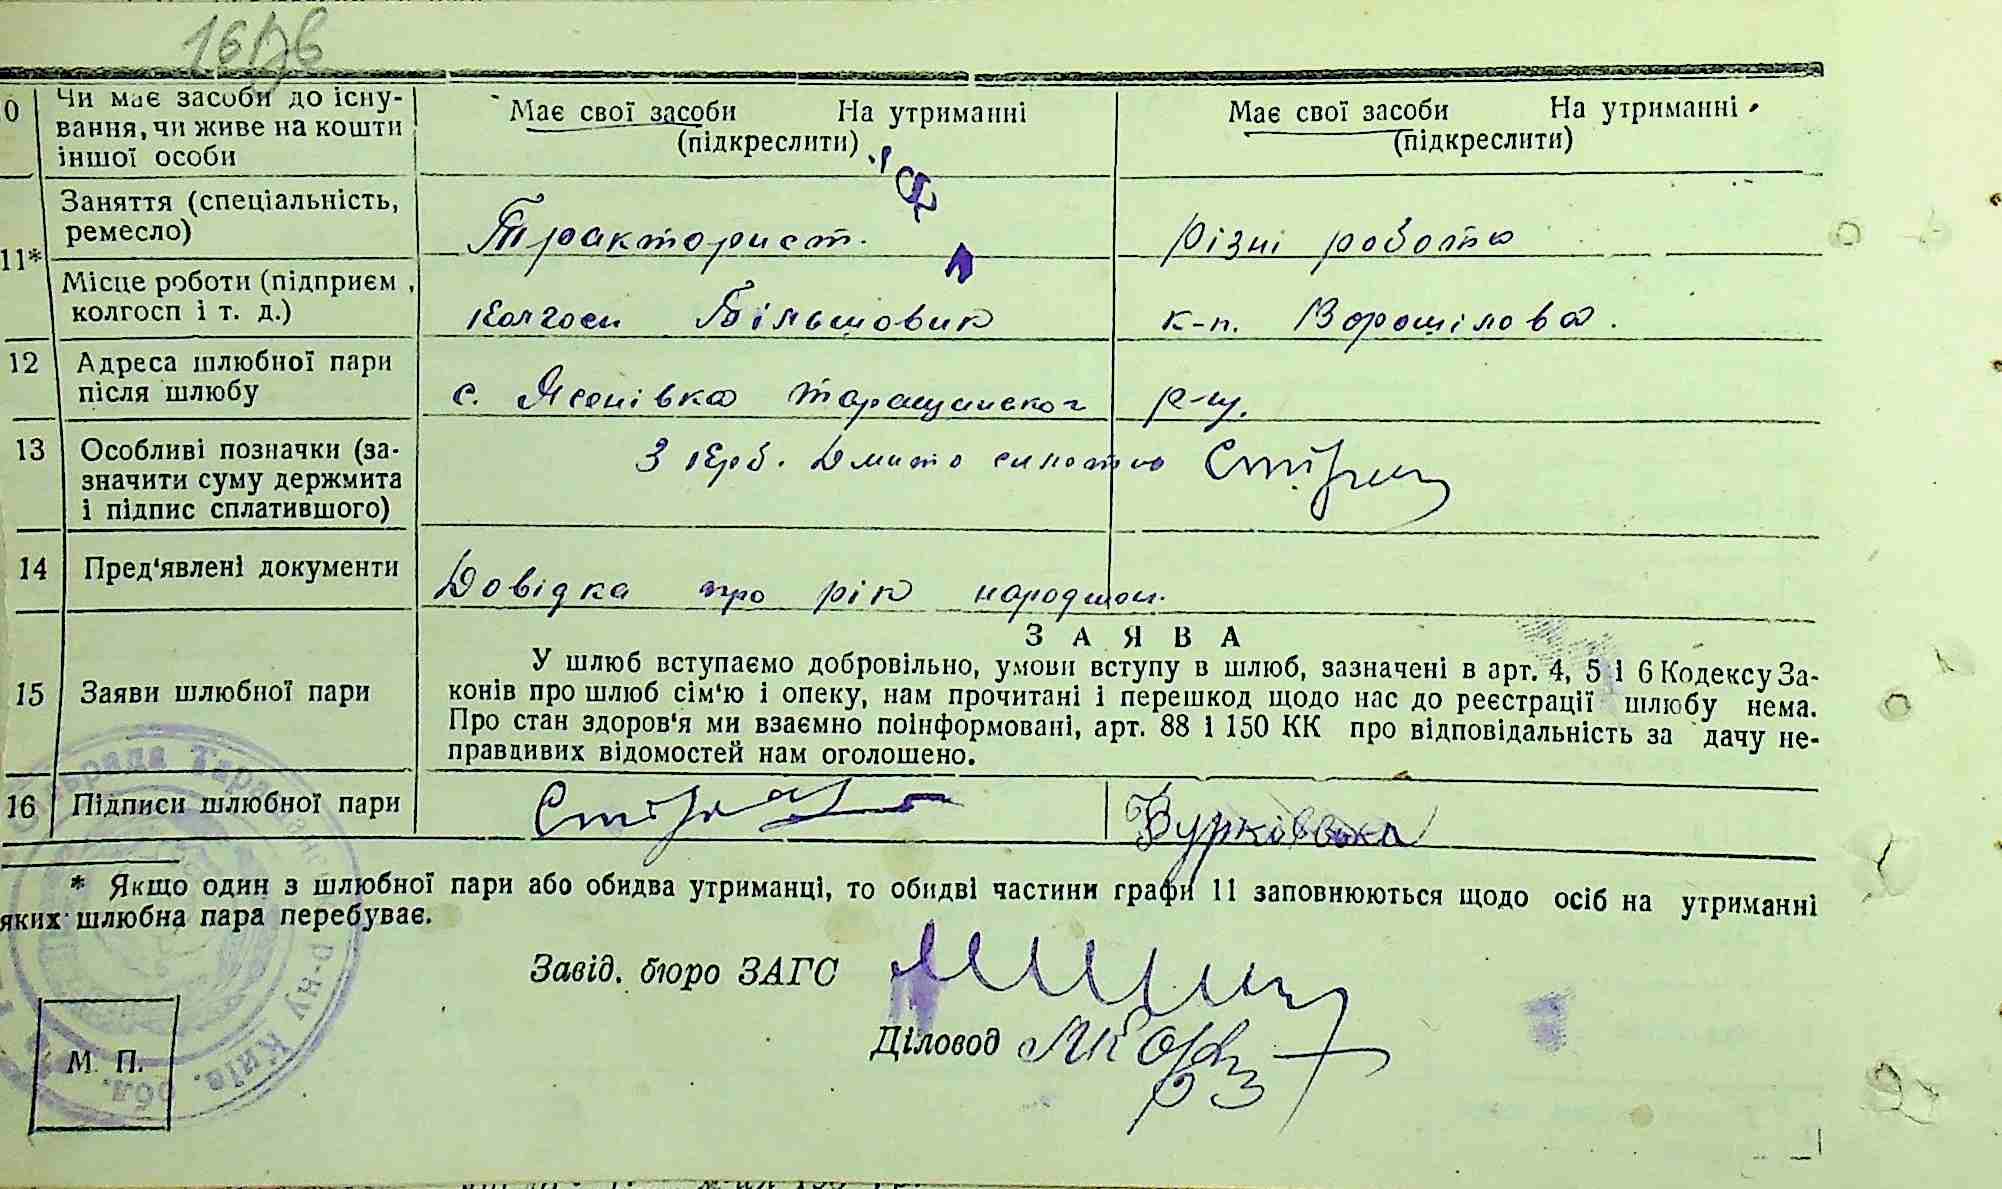 10 Чи має засоби до існу-
вання, чи живе на кошти
іншої особи
Має свої засоби На утриманні
(підкреслити)
Має свої засоби На утриманні
(підкреслити)
11*
Заняття (спеціальність,
ремесло)
Тракторист.
різні роботи
Місце роботи (підприєм,
колгосп і т. д.)
колгосп Більшовик
к-п. Ворошілова.
12 Адреса шлюбної пари
після шлюбу
с. Ясенівка Таращанског р-ну.
13 Особливі позначки (за-
значити суму держмита
і підпис сплатившого)
3 крб.
14 Пред'явлені документи
Довідка про рік народжен.
ЗАЯВА
15 Заяви шлюбної пари
У шлюб вступаємо добровільно, умови вступу в шлюб, зазначені в арт. 4, 5 і 6 Кодексу За-
конів про шлюб сім'ю і опеку, нам прочитані і перешкод щодо нас до реєстрації шлюбу нема.
Про стан здоров'я ми взаємно поінформовані, арт. 88 і 150 КК про відповідальність за дачу не-
правдивих відомостей нам оголошено.
16 Підписи шлюбної пари
* Якщо один з шлюбної пари або обидва утриманці, то обидві частини графи 11 заповнюються щодо осіб на утриманні
яких шлюбна пара перебуває.
Завід. бюро ЗАГС
Діловод
М. П.